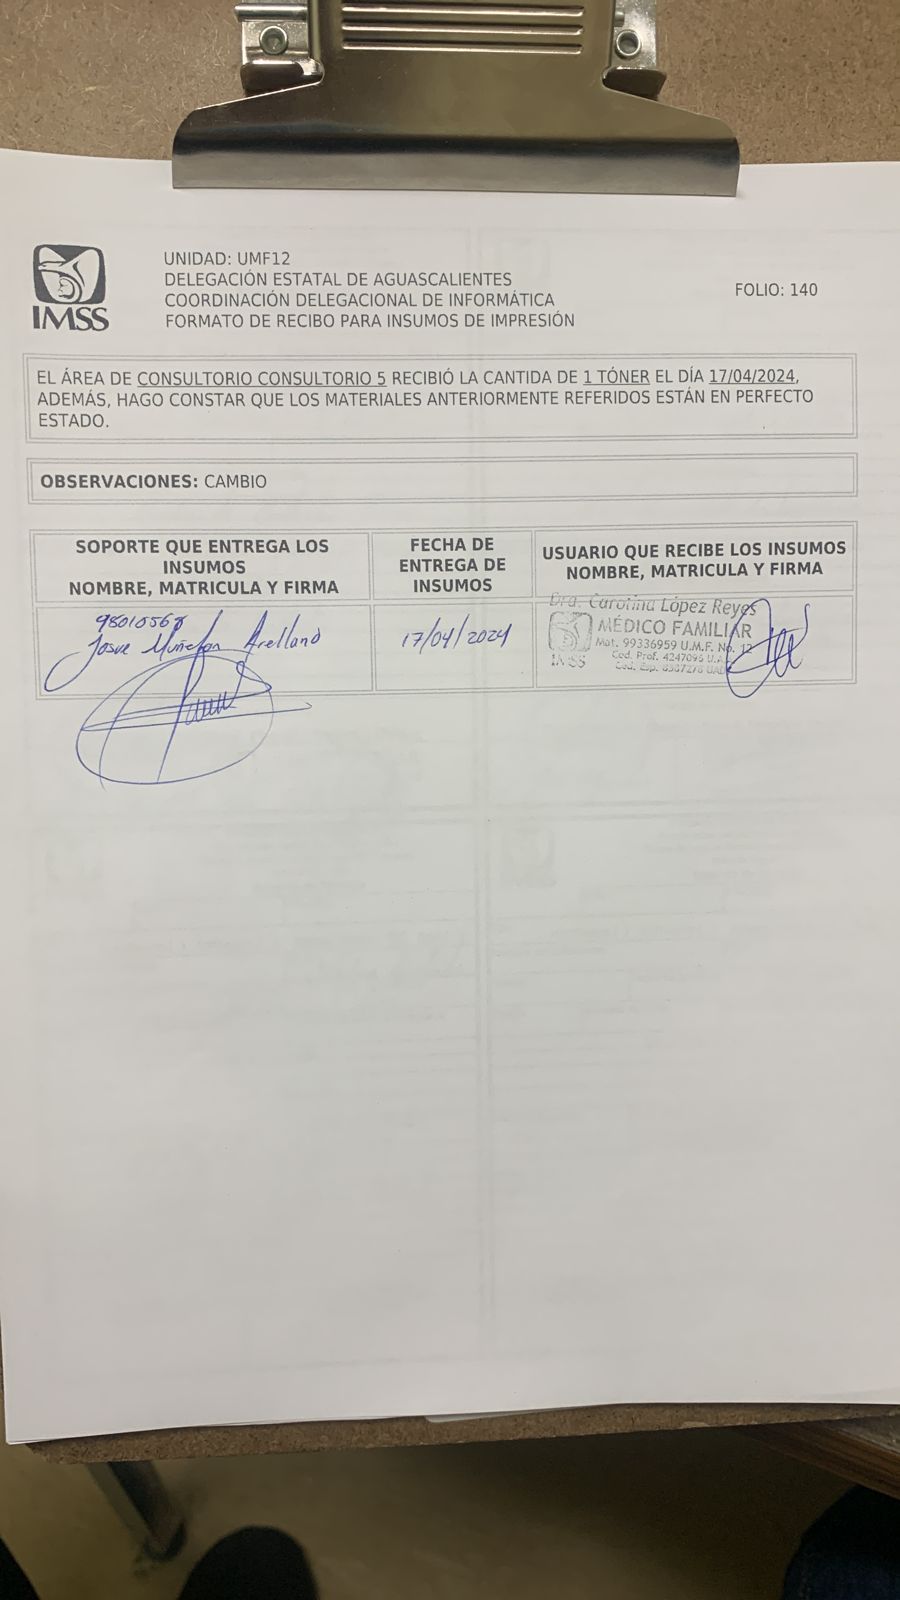 IMSS
UNIDAD: UMF12
DELEGACIÓN ESTATAL DE AGUASCALIENTES
COORDINACIÓN DELEGACIONAL DE INFORMÁTICA
FORMATO DE RECIBO PARA INSUMOS DE IMPRESIÓN
FOLIO: 140
EL ÁREA DE CONSULTORIO CONSULTORIO 5 RECIBIÓ LA CANTIDA DE 1 TÓNER EL DÍA 17/04/2024,
ADEMÁS, HAGO CONSTAR QUE LOS MATERIALES ANTERIORMENTE REFERIDOS ESTÁN EN PERFECTO
ESTADO.
OBSERVACIONES: CAMBIO
SOPORTE QUE ENTREGA LOS
INSUMOS
NOMBRE, MATRICULA Y FIRMA
FECHA DE
ENTREGA DE
INSUMOS
USUARIO QUE RECIBE LOS INSUMOS
NOMBRE, MATRICULA Y FIRMA
98010568
Josue Arellano
17/04/2024
Dra. Carolina López Reyes
MÉDICO FAMILIAR
Mat. 99336959 U.M.F. No. 12
Ced. Prof. 4247096
Ced. Esp.
IMSS